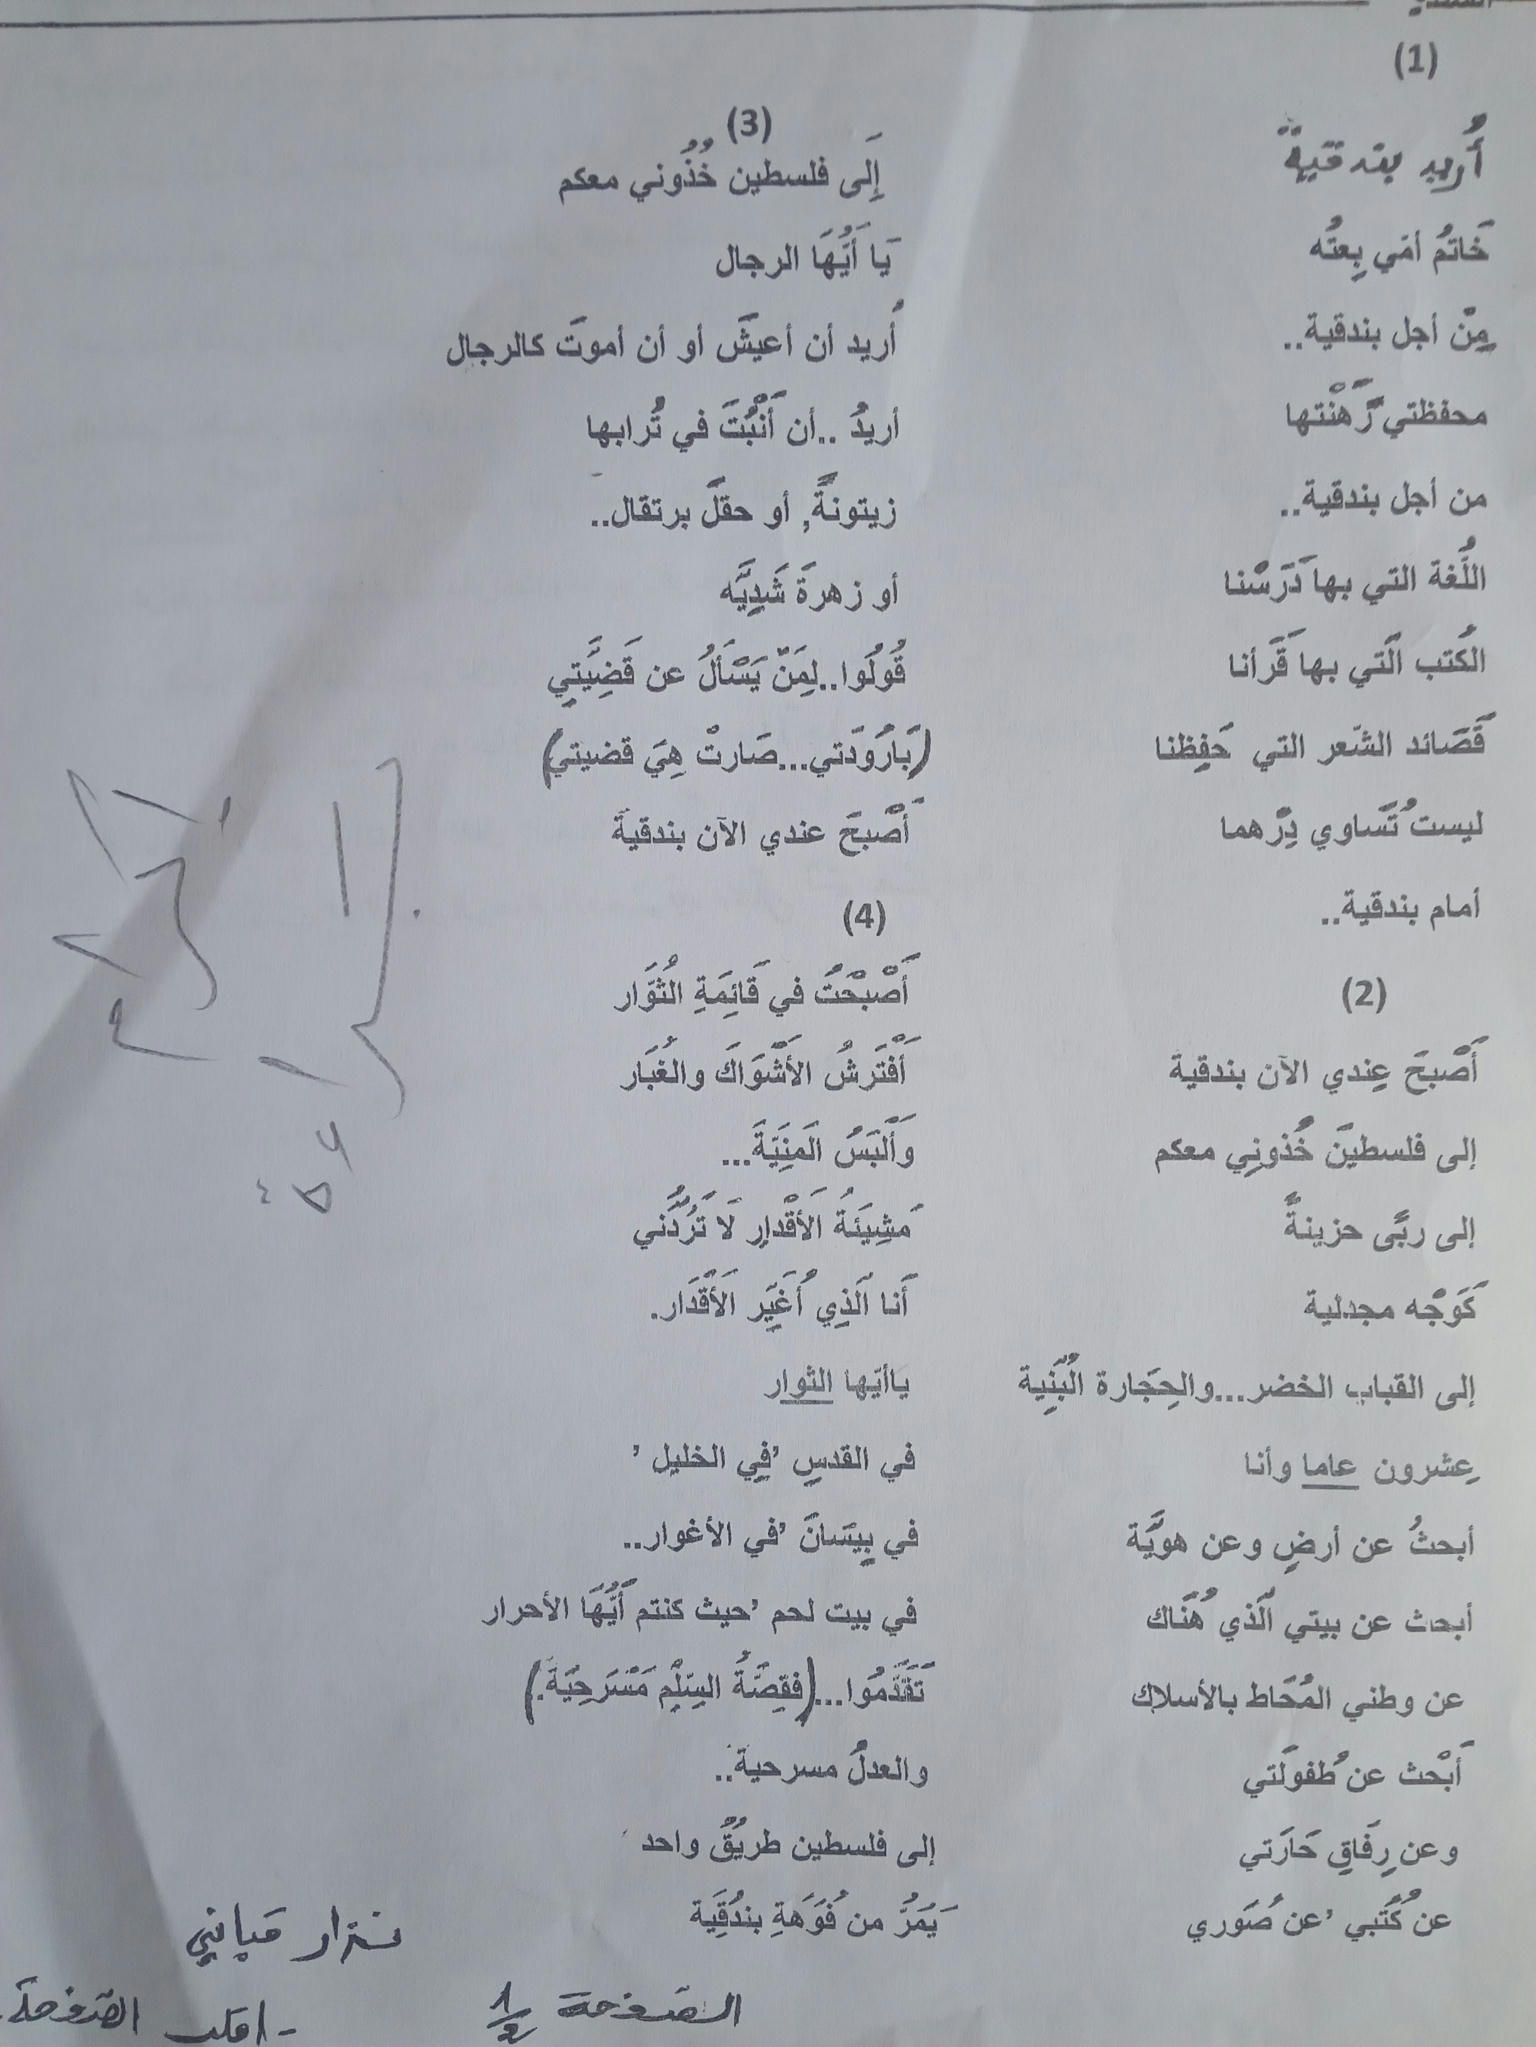 (1)
أُريد بندقيةً
خَاتمُ أمّي بِعتُه
مِنّ أجل بندقية..
محفظتي رَهنْتها
من أجل بندقية..
اللُّغة التي بها دَرَسْنا
الكُتب الَّتي بها قَرَأنا
قَصَائد الشّعر التي حَفِظنا
ليست تُسَاوي دِرْهما
أمام بندقية..
(2)
أَصْبحَ عِندي الآن بندقية
إلى فلسطينَ خُذونِي معكم
إلى ربًى حزينةً
كَوَجْه مجدلية
إلى القباب الخضر...والحِجَارة الُبَنِية
عِشرون عاما وأنا
أبحثُ عن أرضٍ وعن هويَّة
أبحث عن بيتي الَّذي هُنَاك
عن وطني المُحَاط بالأسلاك
أَبْحث عن طُفولَتي
وعن رِفَاقِ حَارَتي
عن كُتُبي ’عن صُوَري
(3)
إِلَى فلسطين خُذُوني معكم
يَا أَيُّهَا الرجال
أُريد أن أعيشَ أو أن أموتَ كالرجال
أريدُ ..أن أَنْبُتَ في تُرابها
زيتونةً, أو حقلَ برتقال..
أو زهرةَ شَدِيَّه
قُولُوا..لِمَنّ يَسْألُ عن قَضِيَّتِي
(بَارُودَتي...صَارتْ هِيَ قضيتي)
أَصْبحَ عندي الآن بندقيةَ
(4)
أَصْبحْتُ في قَائِمَةِ الثُوَّار
أَفْتَرشُ الأَشْوَاكَ والغُبَار
وَأَلْبَسُ الَمنِيَّةَ...
مَشِيَئةُ الأَقْدارِ لَا تَرُدُّني
أَنا الَّذِي أُغَيِّر الَأقْدَار.
ياأيّها الثوار
في القدسِ ’فِي الخليل ’
في بِيسَانَ ’في الأغوار..
في بيت لحم ’حيث كنتم أَيُّهَا الأحرار
تَقَدَّمُوا...(فقِصَّةُ السِّلْمِ مَسْرَحِيَةَ.)
والعدلُ مسرحية..
إلى فلسطين طريقٌ واحد
يَمُرُّ من فُوَهةِ بندُقَِية
نزار قباني
الصفحة 1/2
- اقلب الصفحة.